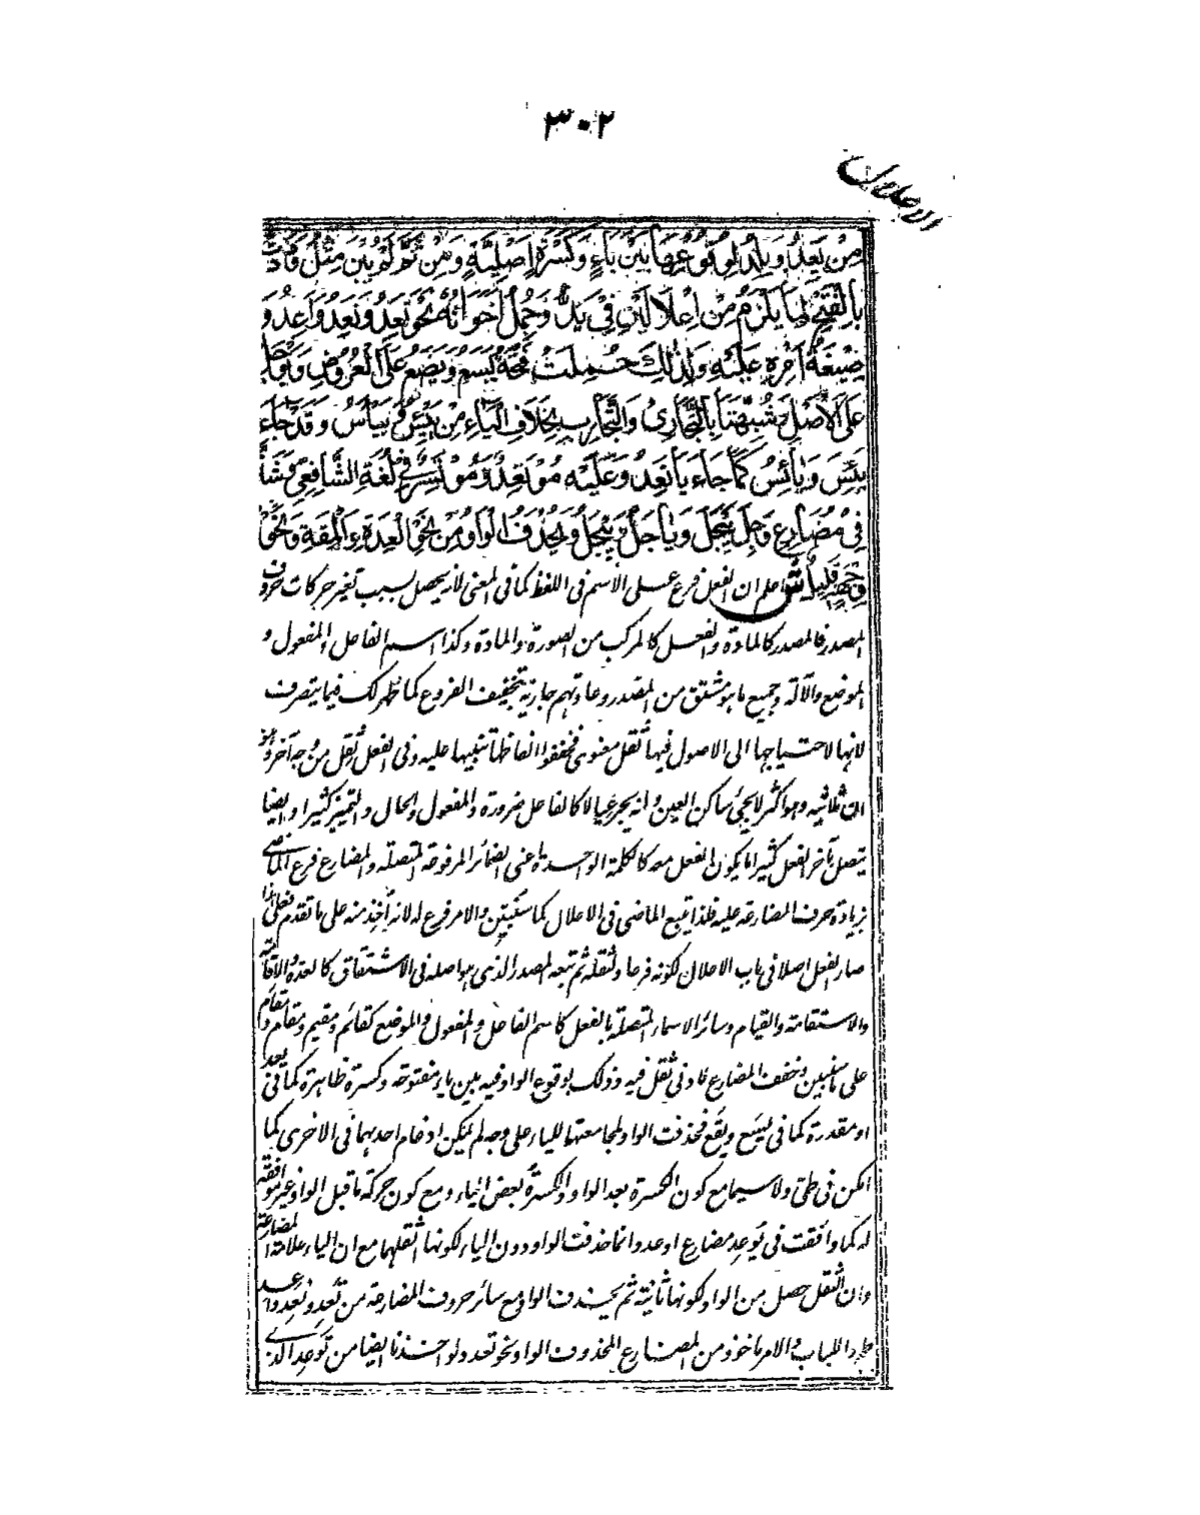 ٣٠٢
الاعلال
مِنْ يَعِدُ وَيَلِدُ لِوُقُوْعِهَا بَيْنَ يَاءٍ وَكَسْرَةٍ اَصْلِيَّةٍ وَمِنْ ثَمَّ لَمْ يُبْنَ مِثْلُ وَدَدْتُ
بِالْفَتْحِ لِمَا يَلْزَمُ مِنْ اِعْلَالَيْنِ فِىْ يَدُّ وَحُمِلَ اَخَوَاتُهُ نَحْوُ تَعِدُ وَنَعِدُ وَاَعِدُ وَ
صِيْغَةُ اَمْرِهِ عَلَيْهِ وَلِذٰلِكَ حُمِلَتْ فَتْحَةُ يَسَعُ وَيَضَعُ عَلَى الْعُرُوْضِ وَيَوْجَلُ
عَلَى الْاَصْلِ وَشُبِّهَتَا بِالتَّجَارِىْ وَالتَّجَارِبِ بِخِلَافِ الْيَاءِ مِنْ يَيْئِسُ وَيَيْسِرُ وَقَدْ جَاءَ
يَئِسَ وَيَائِسُ كَمَا جَاءَ يَاتَعِدُ وَعَلَيْهِ مُوْتَعِدٌ وَمُوْتَسِرٌ فِىْ لُغَةِ الشَّافِعِىِّ وَشَذَّ
فِىْ مُضَارِعِ وَجِلَ يَيْجَلُ وَيَاجَلُ وَيِيْجَلُ وَتُحْذَفُ الْوَاوُ مِنْ نَحْوِ الْعِدَةِ وَالْمِقَةِ وَنَحْوُ
وِجْهَةٍ قَلِيْلٌ ش اعلم ان الفعل فرع على الاسم فى اللفظ كما فى المعنى لانه يحصل بسبب تغير حركات حروف
المصدر فالمصدر كالمادة والفعل كالمركب من الصورة والمادة وكذا اسم الفاعل والمفعول و
الموضع والآلة وجميع ما هو مشتق من المصدر وعادتهم جارية بتخفيف الفروع كما ظهر لك فيما يتصرف
لانها لاحتياجها الى الاصول فيها ثقل معنوى فخففوا الفاظها تنبيها عليه وفى الفعل ثقل من وجه آخر وهو
ان ثلاثيه وهو اكثر لا يجئ ساكن العين وانه يجر عيالا كالفاعل ضرورة والمفعول والحال والتميز كثيرا وايضا
يتصل بآخر الفعل كثيرا ما يكون الفعل معه كالكلمة الواحدة اعنى الضمائر المرفوعة المتصلة والمضارع فرع الماضى
بزيادة حرف المضارعة عليه فلذا تبع الماضى فى الاعلال كما سنبين والامر فرع له لانه أخذ منه على ما تقدم فعلى هذا
صار الفعل اصلا فى باب الاعلال لكونه فرعا ولثقله ثم تبعه المصدر الذى هو اصله فى الاشتقاق كالعدة والاقامة
والاستقامة والقيام وسائر الاسماء المتصلة بالفعل كاسم الفاعل والمفعول والموضع كقائم ومقيم ومقام ومقام
على ما سنبين وخفف المضارع لادنى ثقل فيه وذلك بوقوع الواو فيه بين ياء مفتوحة وكسرة ظاهرة كما فى يعد
او مقدرة كما فى يسع ويقع فحذفت الواو لمجامعتها للياء على وجه لم يمكن ادغام احدهما فى الاخرى كما
امكن فى طى ولا سيما مع كون الكسرة بعد الواو والكسرة بعض الياء ومع كون حركة ما قبل الواو غير موافقة
له كما وافقت فى يُوعِد مضارع اوعد وانما حذفت الواو دون الياء لكونها اثقلهما مع ان الياء علامة المضارعة
وان الثقل حصل من الواو لكونها ثانية ثم يحذف الواو مع سائر حروف المضارعة من تَعِد ونَعِد واعد
طردا للباب والامر ماخوذ من المضارع المحذوف الواو نحو تعد ولو اخذنا ايضا من تَوعِد الذى